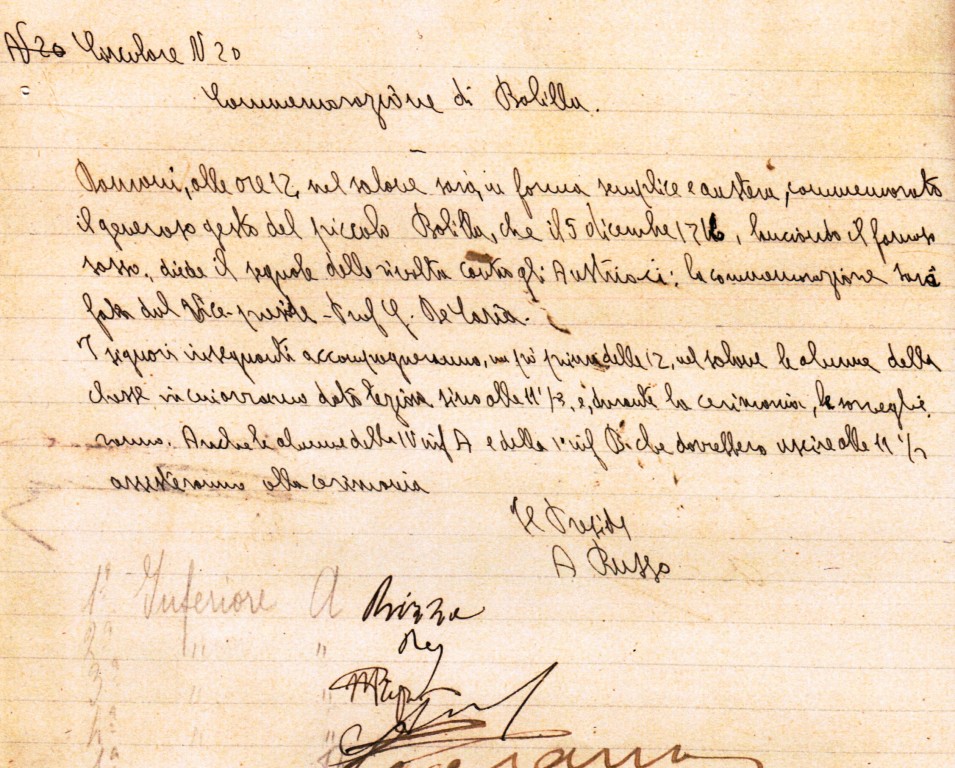 N 20 Circolare N 20
Commemorazione di Balilla.
Domani, alle ore 12, nel salone sarà, in forma semplice e austera, commemorato
il generoso gesto del piccolo Balilla, che il 5 dicembre 1746, lanciando il famoso
sasso, diede il segnale della rivolta contro gli Austriaci: la commemorazione sarà
fatta dal Vice-preside - Prof G.
I signori insegnanti accompagneranno, un po' prima delle 12, nel salone le alunne della
classe in cui avranno dato lezione sino alle 11 1/2, e, durante la cerimonia, le sorveglie
ranno. Anche le alunne della IV inf A e della 1a inf B. che dovrebbero uscire alle 11 1/2
assisteranno alla cerimonia
Il Preside
A Russo
1a Inferiore A Rizza
2a " "
3a " "
4a "
1a